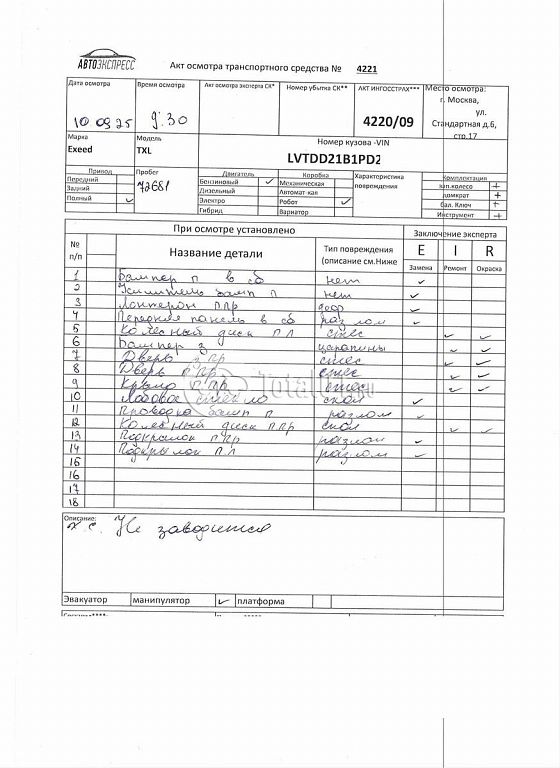 АВТОЭКСПРЕСС
Акт осмотра транспортного средства № 4221
Дата осмотра
Время осмотра
Акт осмотра эксперта СК*
Номер убытка СК**
АКТ ИНГОССТРАХ***
Место осмотра:
г. Москва,
ул.
Стандартная д.6,
стр.17
10 09 25
9:30
4220/09
Марка
Модель
Номер кузова -VIN
Exeed
TXL
LVTDD21B1PD2
Привод
Пробег
Двигатель
Коробка
Характеристика
повреждения
Комплектация
Передний
72681
Бензиновый ✓
Механическая
зап.колесо +
Задний
Дизельный
Автомат-кая
домкрат +
Полный ✓
Электро
Робот ✓
бал. Ключ +
Гибрид
Вариатор
Инструмент +
При осмотре установлено
Заключение эксперта
№
п/п
Название детали
Тип повреждения
(описание см.Ниже
E
I
R
Замена
Ремонт
Окраска
1 Бампер п в сб нет ✓
2 Усилитель бамп п нет ✓
3 Лонжерон ППР деф ✓
4 Передняя панель в сб разлом ✓
5 Колесный диск п л стес ✓ ✓
6 Бампер з царапины ✓ ✓
7 Дверь з пр стес ✓ ✓
8 Дверь п пр стес ✓ ✓
9 Крыло п пр стес ✓ ✓
10 Лобовое стекло скол ✓
11 Проводка бамп п разлом ✓
12 Колесный диск ППР скол ✓ ✓
13 Подкрылок ППР разлом ✓
14 Подкрылок П Л разлом ✓
15
16
17
18
Total
Описание:
Не заводится
Эвакуатор
манипулятор ✓
платформа